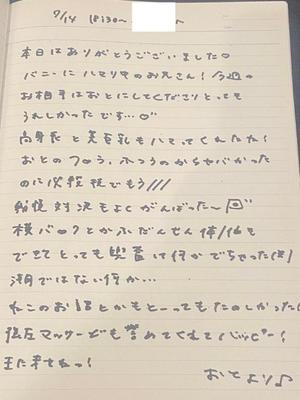 9/14 18:30〜
本日はありがとうございました♡
バニーにハマりやのお兄さん！今週の
お相手はおとにしてくださりとっても
うれしかったです…♡"
高身長と美巨乳もハマってくれたた！
おとのフつう、ふつうのからヤバかった
のに でもう///
対決もよくがんばった〜
横バックとかふだんせん体位も
できてとっても 何かでちゃった(笑)
潮ではない何か…
ねこのお話とかもとーってもたのしかった
マッサージも誉めてくれてハッピー！
また来てねっ！
おとより♪